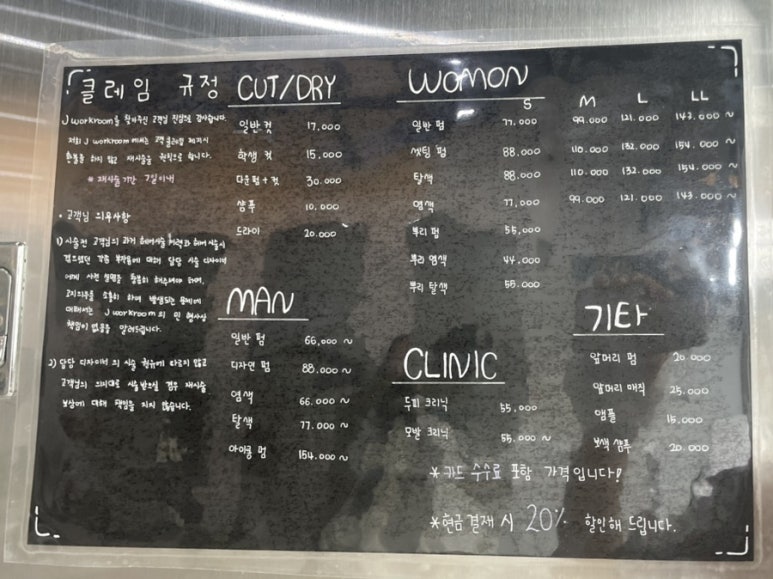 클레임 규정
J workroom을 찾아주신 고객님 진심으로 감사합니다.
저희 J workroom 에서는 고객 클레임 제기시
환불을 하지 않고 재시술을 원칙으로 합니다.
* 재시술기간 7일이내
• 고객님 의무사항
1) 시술전 고객님의 과거 헤어시술 이력과 헤어 시술시
겪으셨던 각종 부작용에 대해 담당 시술 디자이너
에게 사전 설명을 충분히 해주셔야 하며,
고지의무를 소홀히 하여 발생되는 문제에
대해서는 J workroom 의 민 형사상
책임이 없음을 알려드립니다.
2) 담당 디자이너 의 시술 권유에 따르지 않고
고객님의 의지대로 시술받으실 경우 재시술
보상에 대해 책임을 지지 않습니다.
CUT/DRY
일반 컷 17.000
학생 컷 15.000
다운펌 + 컷 30.000
샴푸 10.000
드라이 20.000
MAN
일반 펌 66,000 ~
디자인 펌 88.000 ~
염색 66.000 ~
탈색 77.000 ~
아이롱 펌 154.000 ~
WOMON
S M L LL
일반 펌 77.000 99.000 121.000 143.000 ~
셋팅 펌 88,000 110.000 132.000 154.000 ~
탈색 88.000 110.000 132.000 154.000 ~
염색 77,000 99.000 121.000 143.000 ~
뿌리 펌 55,000
뿌리 염색 44.000
뿌리 탈색 55.000
CLINIC
두피 크리닉 55,000
모발 크리닉 55.000 ~
기타
앞머리 펌 20.000
앞머리 매직 25.000
앰플 15.000
보색 샴푸 20.000
*카드 수수료 포함 가격입니다!
*현금결재 시 20% 할인해 드립니다.